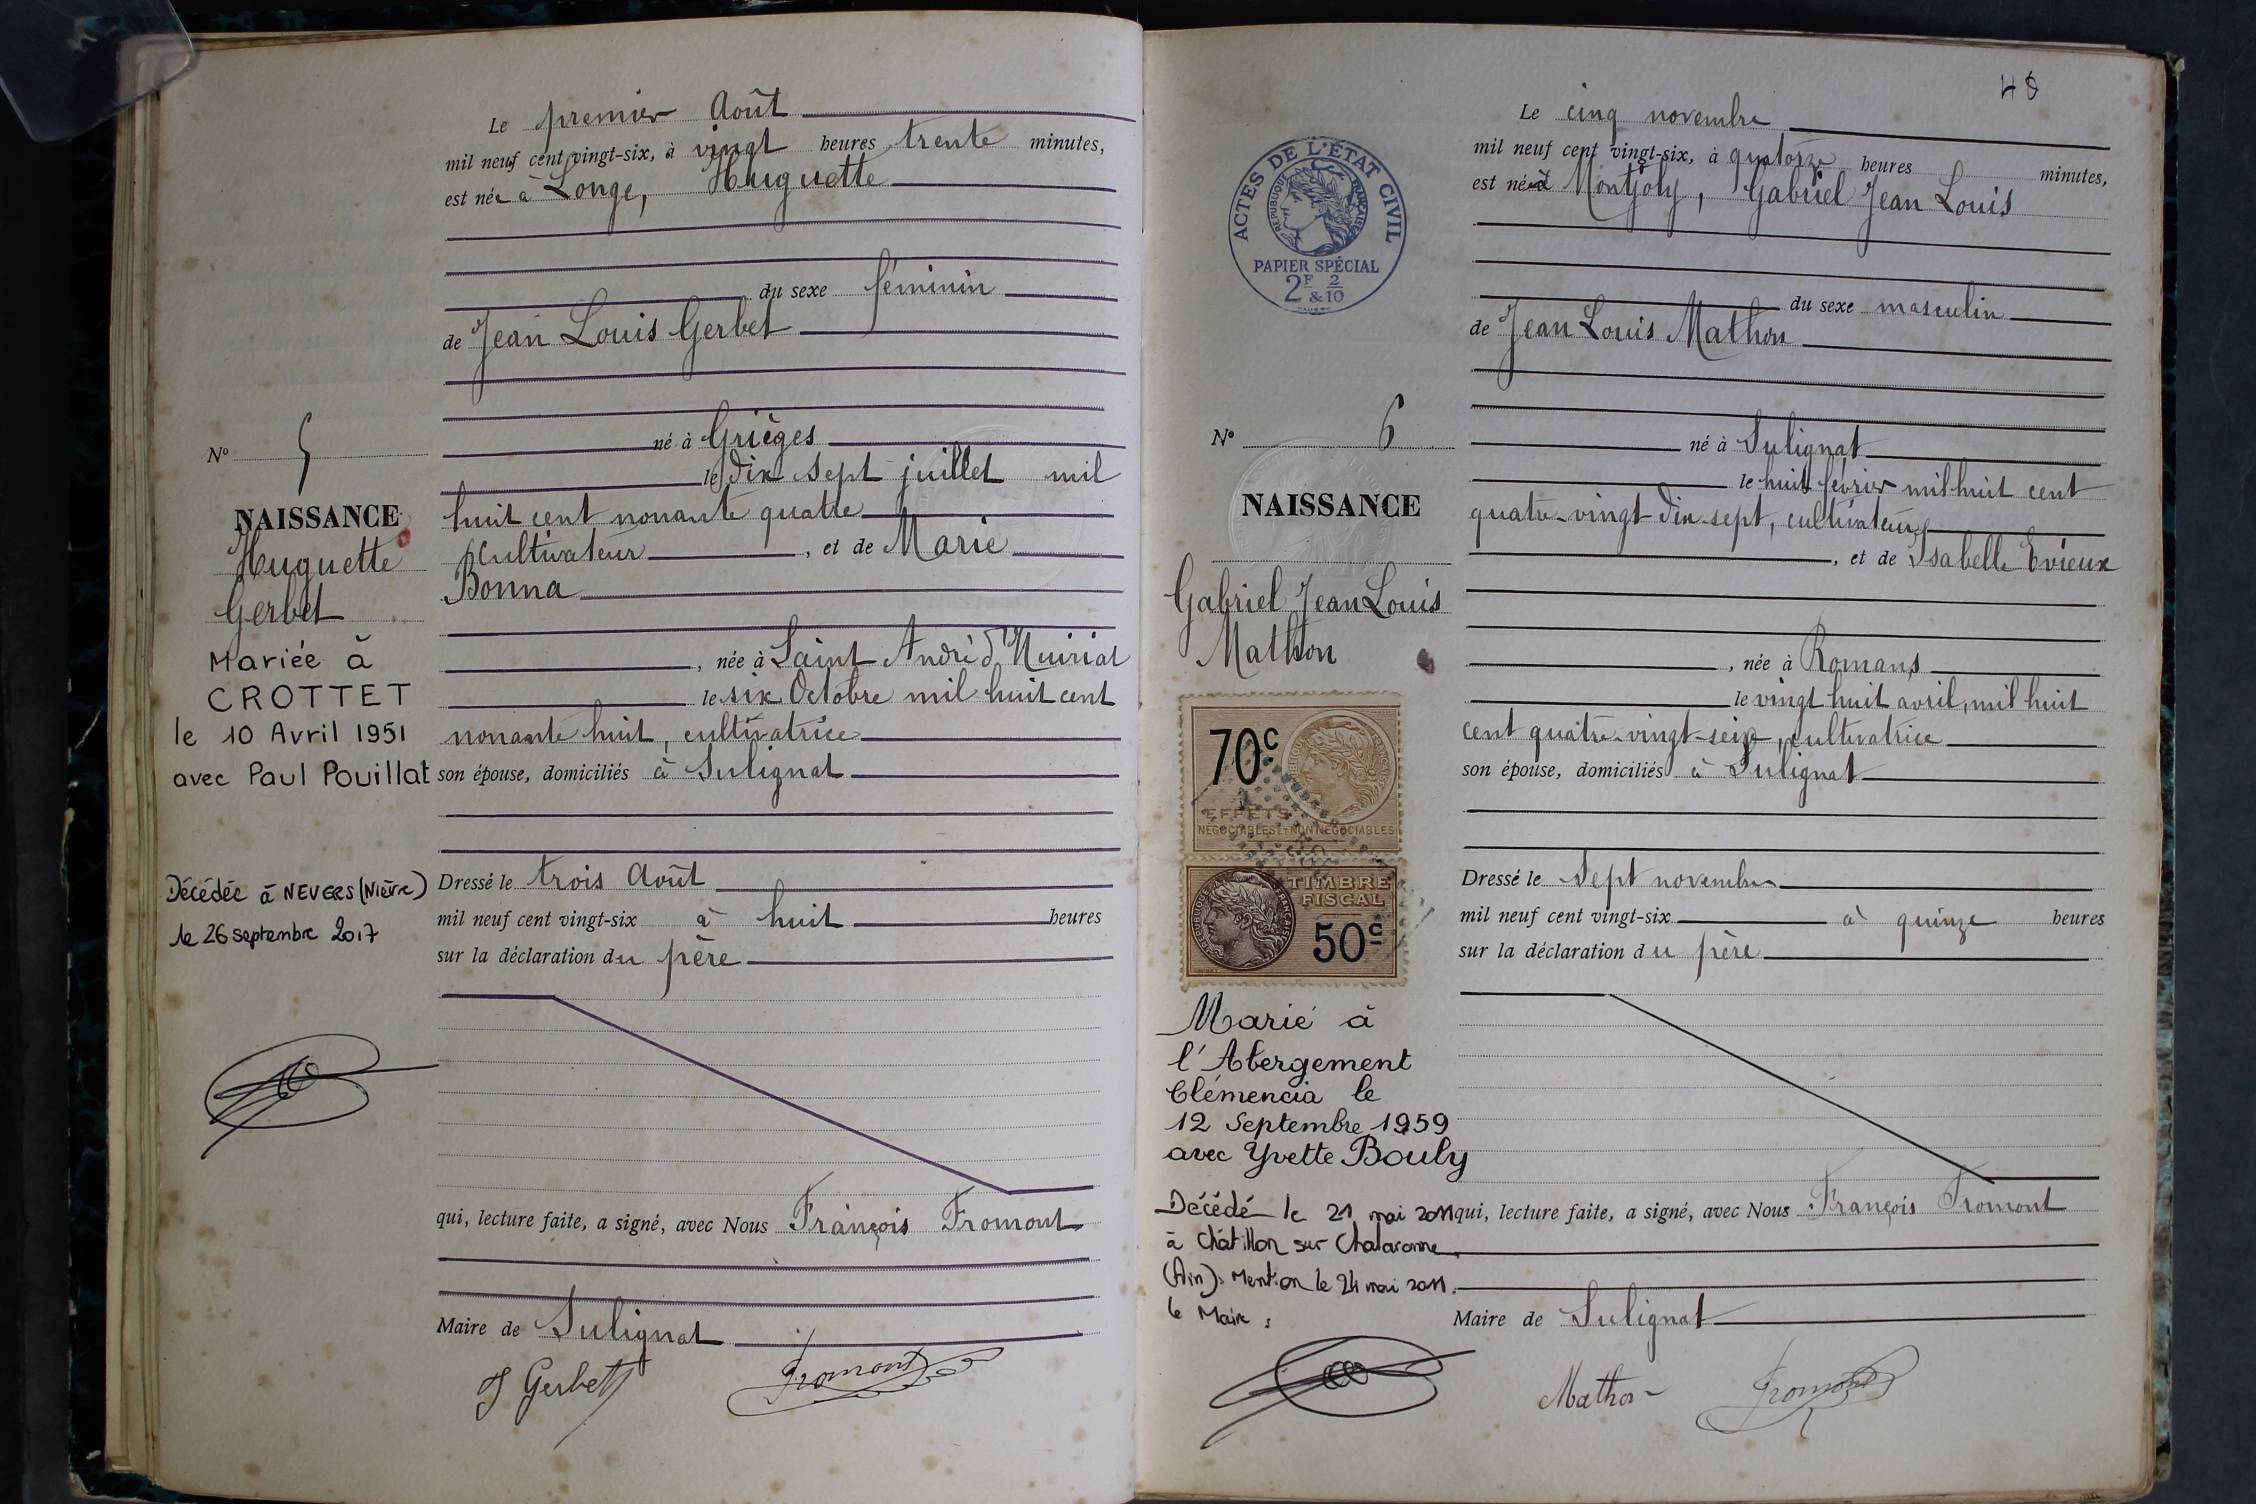 Le premier Août
mil neuf cent vingt-six, à vingt heures trente minutes,
est née à Longe, Huguette
du sexe féminin
de Jean Louis Gerbet
né à Grièges
le dix sept juillet mil
huit cent nonante quatre
cultivateur, et de Marie
Bonna
, née à Saint André d'Huiriat
le six Octobre mil huit cent
nonante huit, cultivatrice
son épouse, domiciliés à Sulignat
Dressé le trois Août
mil neuf cent vingt-six à huit heures
sur la déclaration du père
qui, lecture faite, a signé, avec Nous François Fromont
Maire de Sulignat
J Gerbet Fromont
No 5
NAISSANCE
Huguette
Gerbet
Mariée à
CROTTET
le 10 Avril 1951
avec Paul Pouillat
Décédée à NEVERS (Nièvre)
le 26 septembre 2017
48
Le cinq novembre
mil neuf cent vingt-six, à quatorze heures minutes,
est né à Montjoly, Gabriel Jean Louis
du sexe masculin
de Jean Louis Mathon
né à Sulignat
le huit février mil huit cent
quatre-vingt-dix-sept, cultivateur
, et de Isabelle Evieux
, née à Romans
le vingt huit avril, mil huit
cent quatre-vingt-seize, cultivatrice
son épouse, domiciliés à Sulignat
Dressé le sept novembre
mil neuf cent vingt-six à quinze heures
sur la déclaration du père
qui, lecture faite, a signé, avec Nous François Fromont
Maire de Sulignat
Mathon Fromont
ACTES DE L'ÉTAT CIVIL
RÉPUBLIQUE FRANÇAISE
PAPIER SPÉCIAL
2F & 2/10
No 6
NAISSANCE
Gabriel Jean Louis
Mathon
70c
EFFETS
NÉGOCIABLES ET NON NÉGOCIABLES
TIMBRE
FISCAL
RÉPUBLIQUE FRANÇAISE
50c
Marié à
l'Abergement
Clémencia le
12 Septembre 1959
avec Yvette Bouly
Décédé le 21 mai 2011
à Châtillon sur Chalaronne
(Ain). Mention le 24 mai 2011.
le Maire :